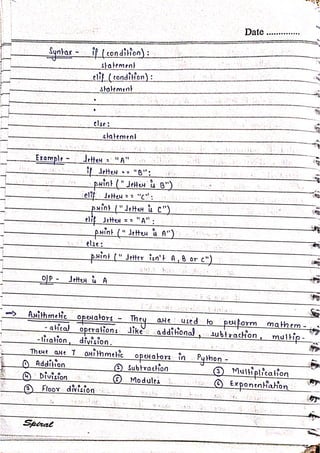 Date ..............
Syntax - if (condition) :
statement
elif (condition) :
statement
.
.
else :
statement
Example - letter = "A"
if letter == "B" :
print (" letter is B")
elif letter == "C" :
print (" letter is C")
elif letter == "A" :
print (" letter is A")
else :
print (" letter isn't A, B or C")
O/P - letter is A
→ Arithmetic operators - They are used to perform mathem-
-atical operations like additional, subtraction, multip-
-lication, division.
There are 7 arithmetic operators in Python -
① Addition ② Subtraction ③ Multiplication
④ Division ⑤ Modules ⑥ Exponentiation
⑦ Floor division
Spiral